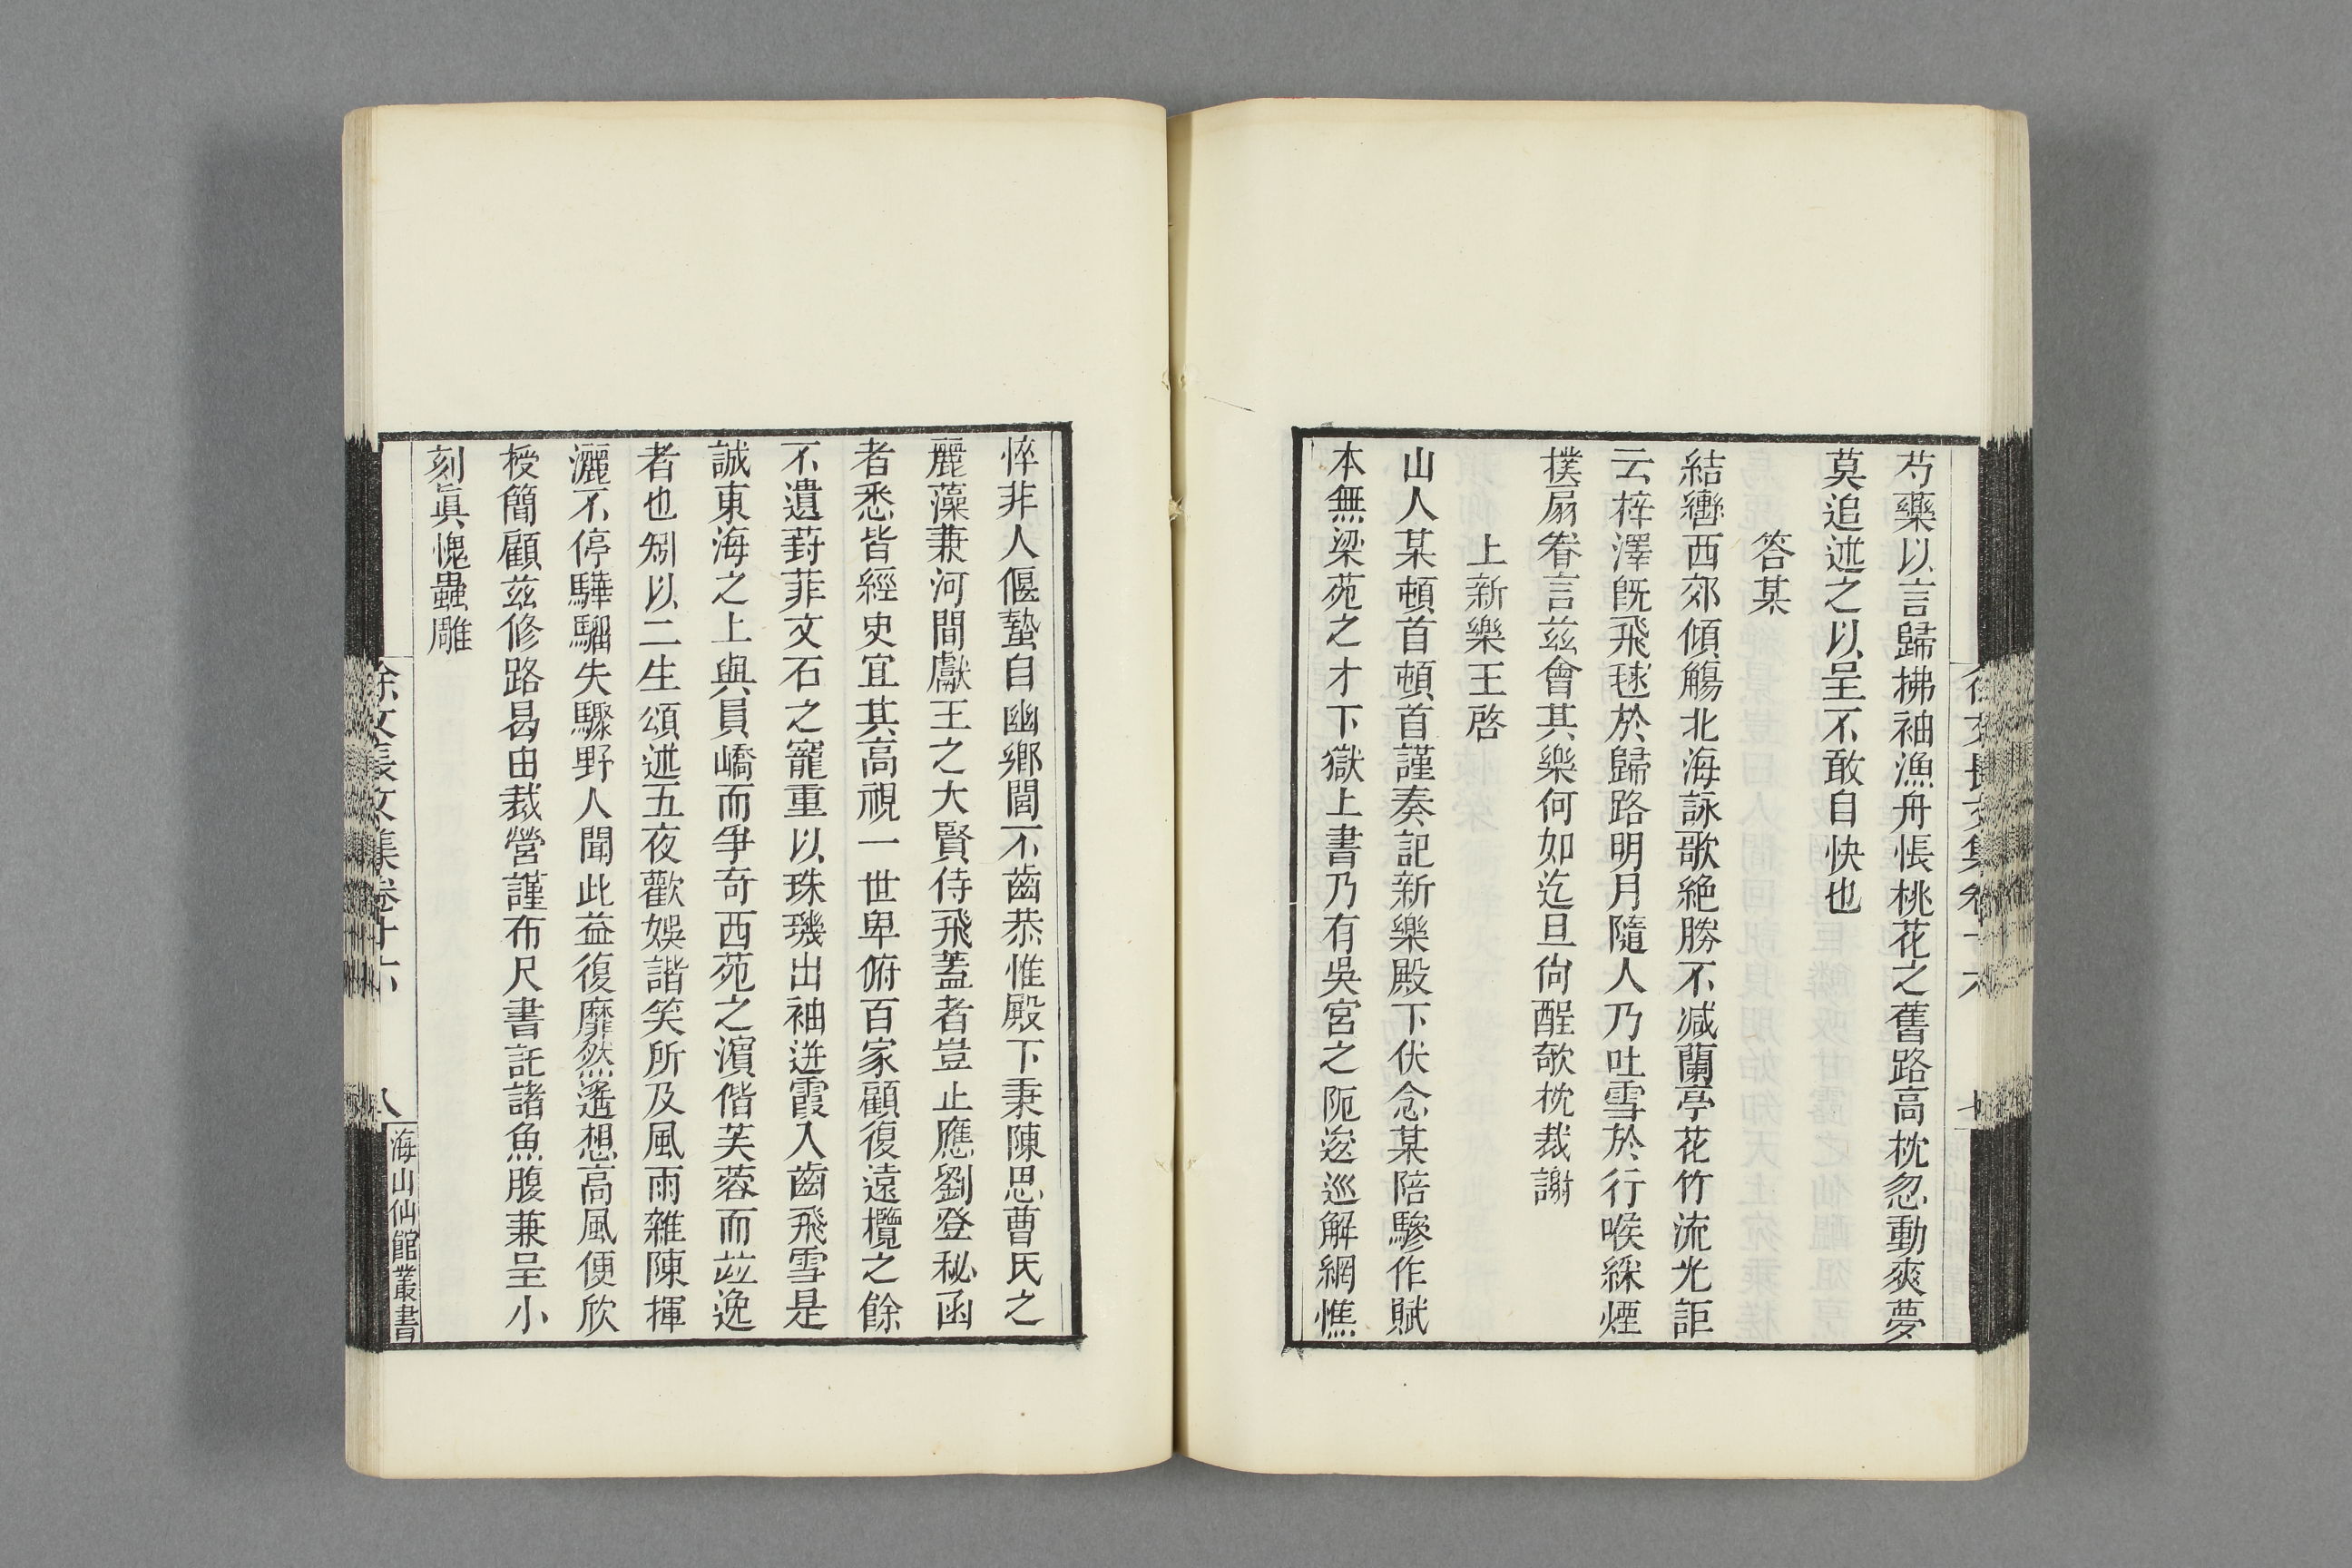 芍藥以言歸拂袖漁舟悵桃花之舊路高枕忽動爽夢
莫追述之以呈不敢自快也
答某
結轡西郊傾觴北海詠歌絶勝不减蘭亭花竹流光詎
云梓澤旣飛毬於歸路明月隨人乃吐雪於行喉綵煙
撲扇眷言兹會其樂何如迄旦尙酲欹枕裁謝
上新樂王啓
山人某頓首頓首謹奏記新樂殿下伏念某陪驂作賦
本無梁苑之才下獄上書乃有吳宮之阨逡巡解網憔
徐文長文集卷十六
七
悴非人偃蟄自幽鄉閭不齒恭惟殿下秉陳思曹氏之
麗藻兼河間獻王之大賢侍飛蓋者豈止應劉登秘函
者悉皆經史宜其高視一世卑俯百家顧復遠攬之餘
不遺葑菲文石之寵重以珠璣出袖迸霞入齒飛雪是
誠東海之上與員嶠而爭奇西苑之濵偕芙蓉而竝逸
者也矧以二生頌述五夜歡娛諧笑所及風雨雜陳揮
灑不停驊騮失驟野人聞此益復靡然遙想高風便欣
授簡顧兹修路曷由裁營謹布尺書託諸魚腹兼呈小
刻眞愧蟲雕
徐文長文集卷十六
八
海山仙館叢書